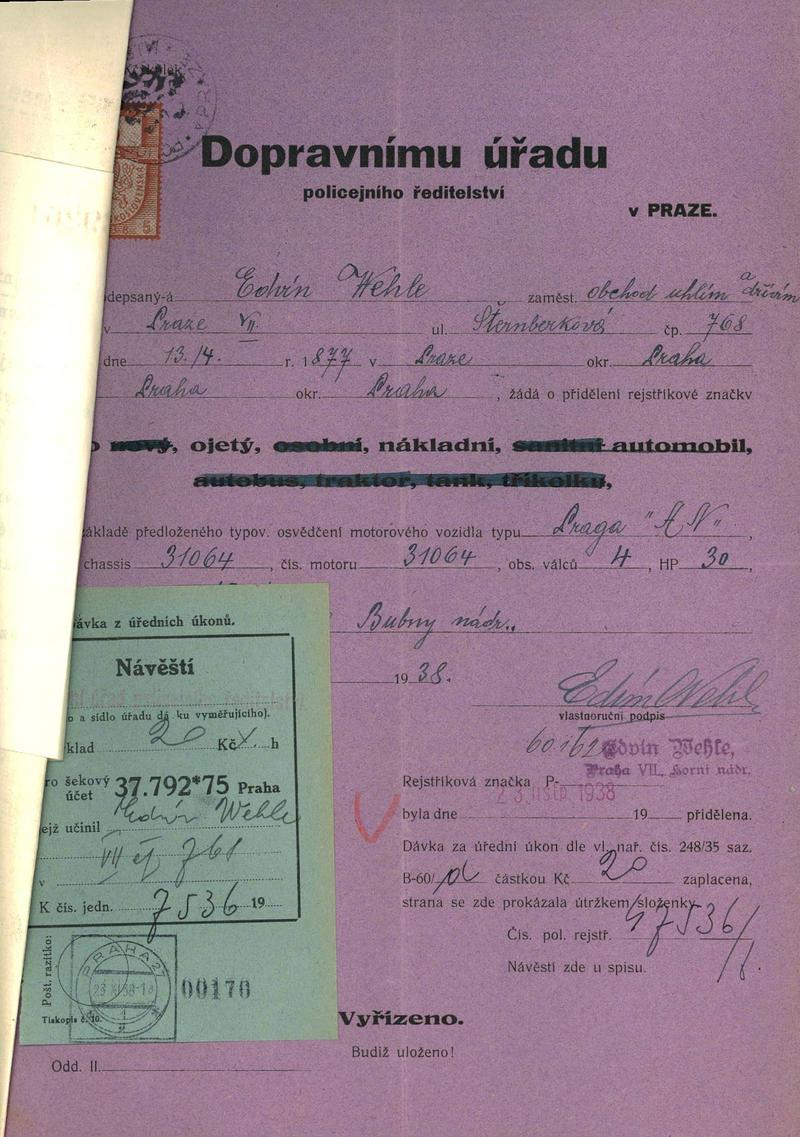 Dopravnímu úřadu
policejního ředitelství
v PRAZE.
depsaný-á Edvín Wehle zaměst. obchod uhlím a dřívím
v Praze VII. ul. Šternberková čp. 768
dne 13./4. r. 1877 v Praze okr. Praha
Praha okr. Praha, žádá o přidělení rejstříkové značky
o nový, ojetý, osobní, nákladní, sanitní automobil,
autobus, traktor, tank, tříkolku,
ákladě předloženého typov. osvědčení motorového vozidla typu Praga "AN",
chassis 31064, čís. motoru 31064, obs. válců 4, HP 30,
Bubny nádr..
1938.
Edvin Wehle
vlastnoruční podpis
Edvin Wehle,
Praha VII., Horní nádr.
Rejstříková značka P-
23. listp 1938
byla dne 19 přidělena.
Dávka za úřední úkon dle vl. nař. čís. 248/35 saz.
B-60/d částkou Kč 20 zaplacena,
strana se zde prokázala útržkem složenky
Čís. pol. rejstř. 47536/
Návěští zde u spisu.
Vyřízeno.
Budiž uloženo!
Odd. II.
ávka z úředních úkonů.
Návěští
o a sídlo úřadu dá ku vyměřujícího).
klad 20 Kč x h
ro šekový účet 37.792*75 Praha
ejž učinil Edvín Wehle
VII čj 768
v
K čís. jedn. 7536 19
Pošt. razítko:
PRAHA 27
23 XI 38
00170
Tiskopis č. 10.